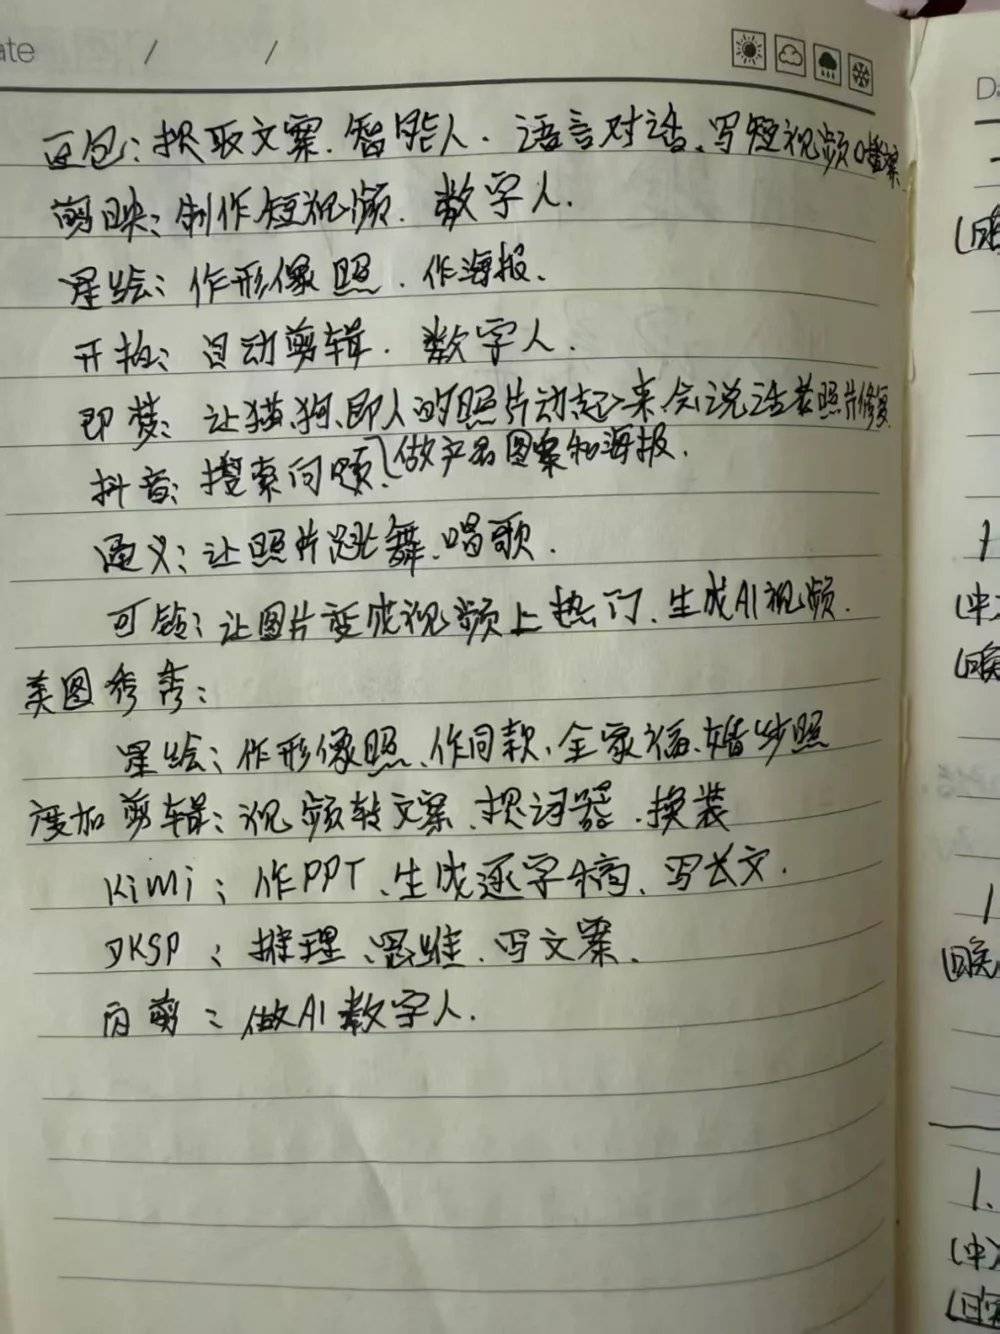 ate / /
豆包：提取文案．智能人．语言对话、写短视频口播文案
剪映：制作短视频．数字人．
星绘：作形像照．作海报．
开拍：自动剪辑．数字人．
即梦：让猫、狗、即人的照片动起来、会说话、老照片修复
抖音：搜索问题、(做产品图案和海报．
通义：让照片跳舞、唱歌．
可铃：让图片变成视频上热门、生成AI视频．
美图秀秀：
星绘：作形像照、作同款、全家福、婚纱照
度加剪辑：视频转文案、提词器．换装
Kimi：作PPT、生成逐字稿、写长文．
DKSP：推理、思维、写文案．
百剪：做AI数字人．